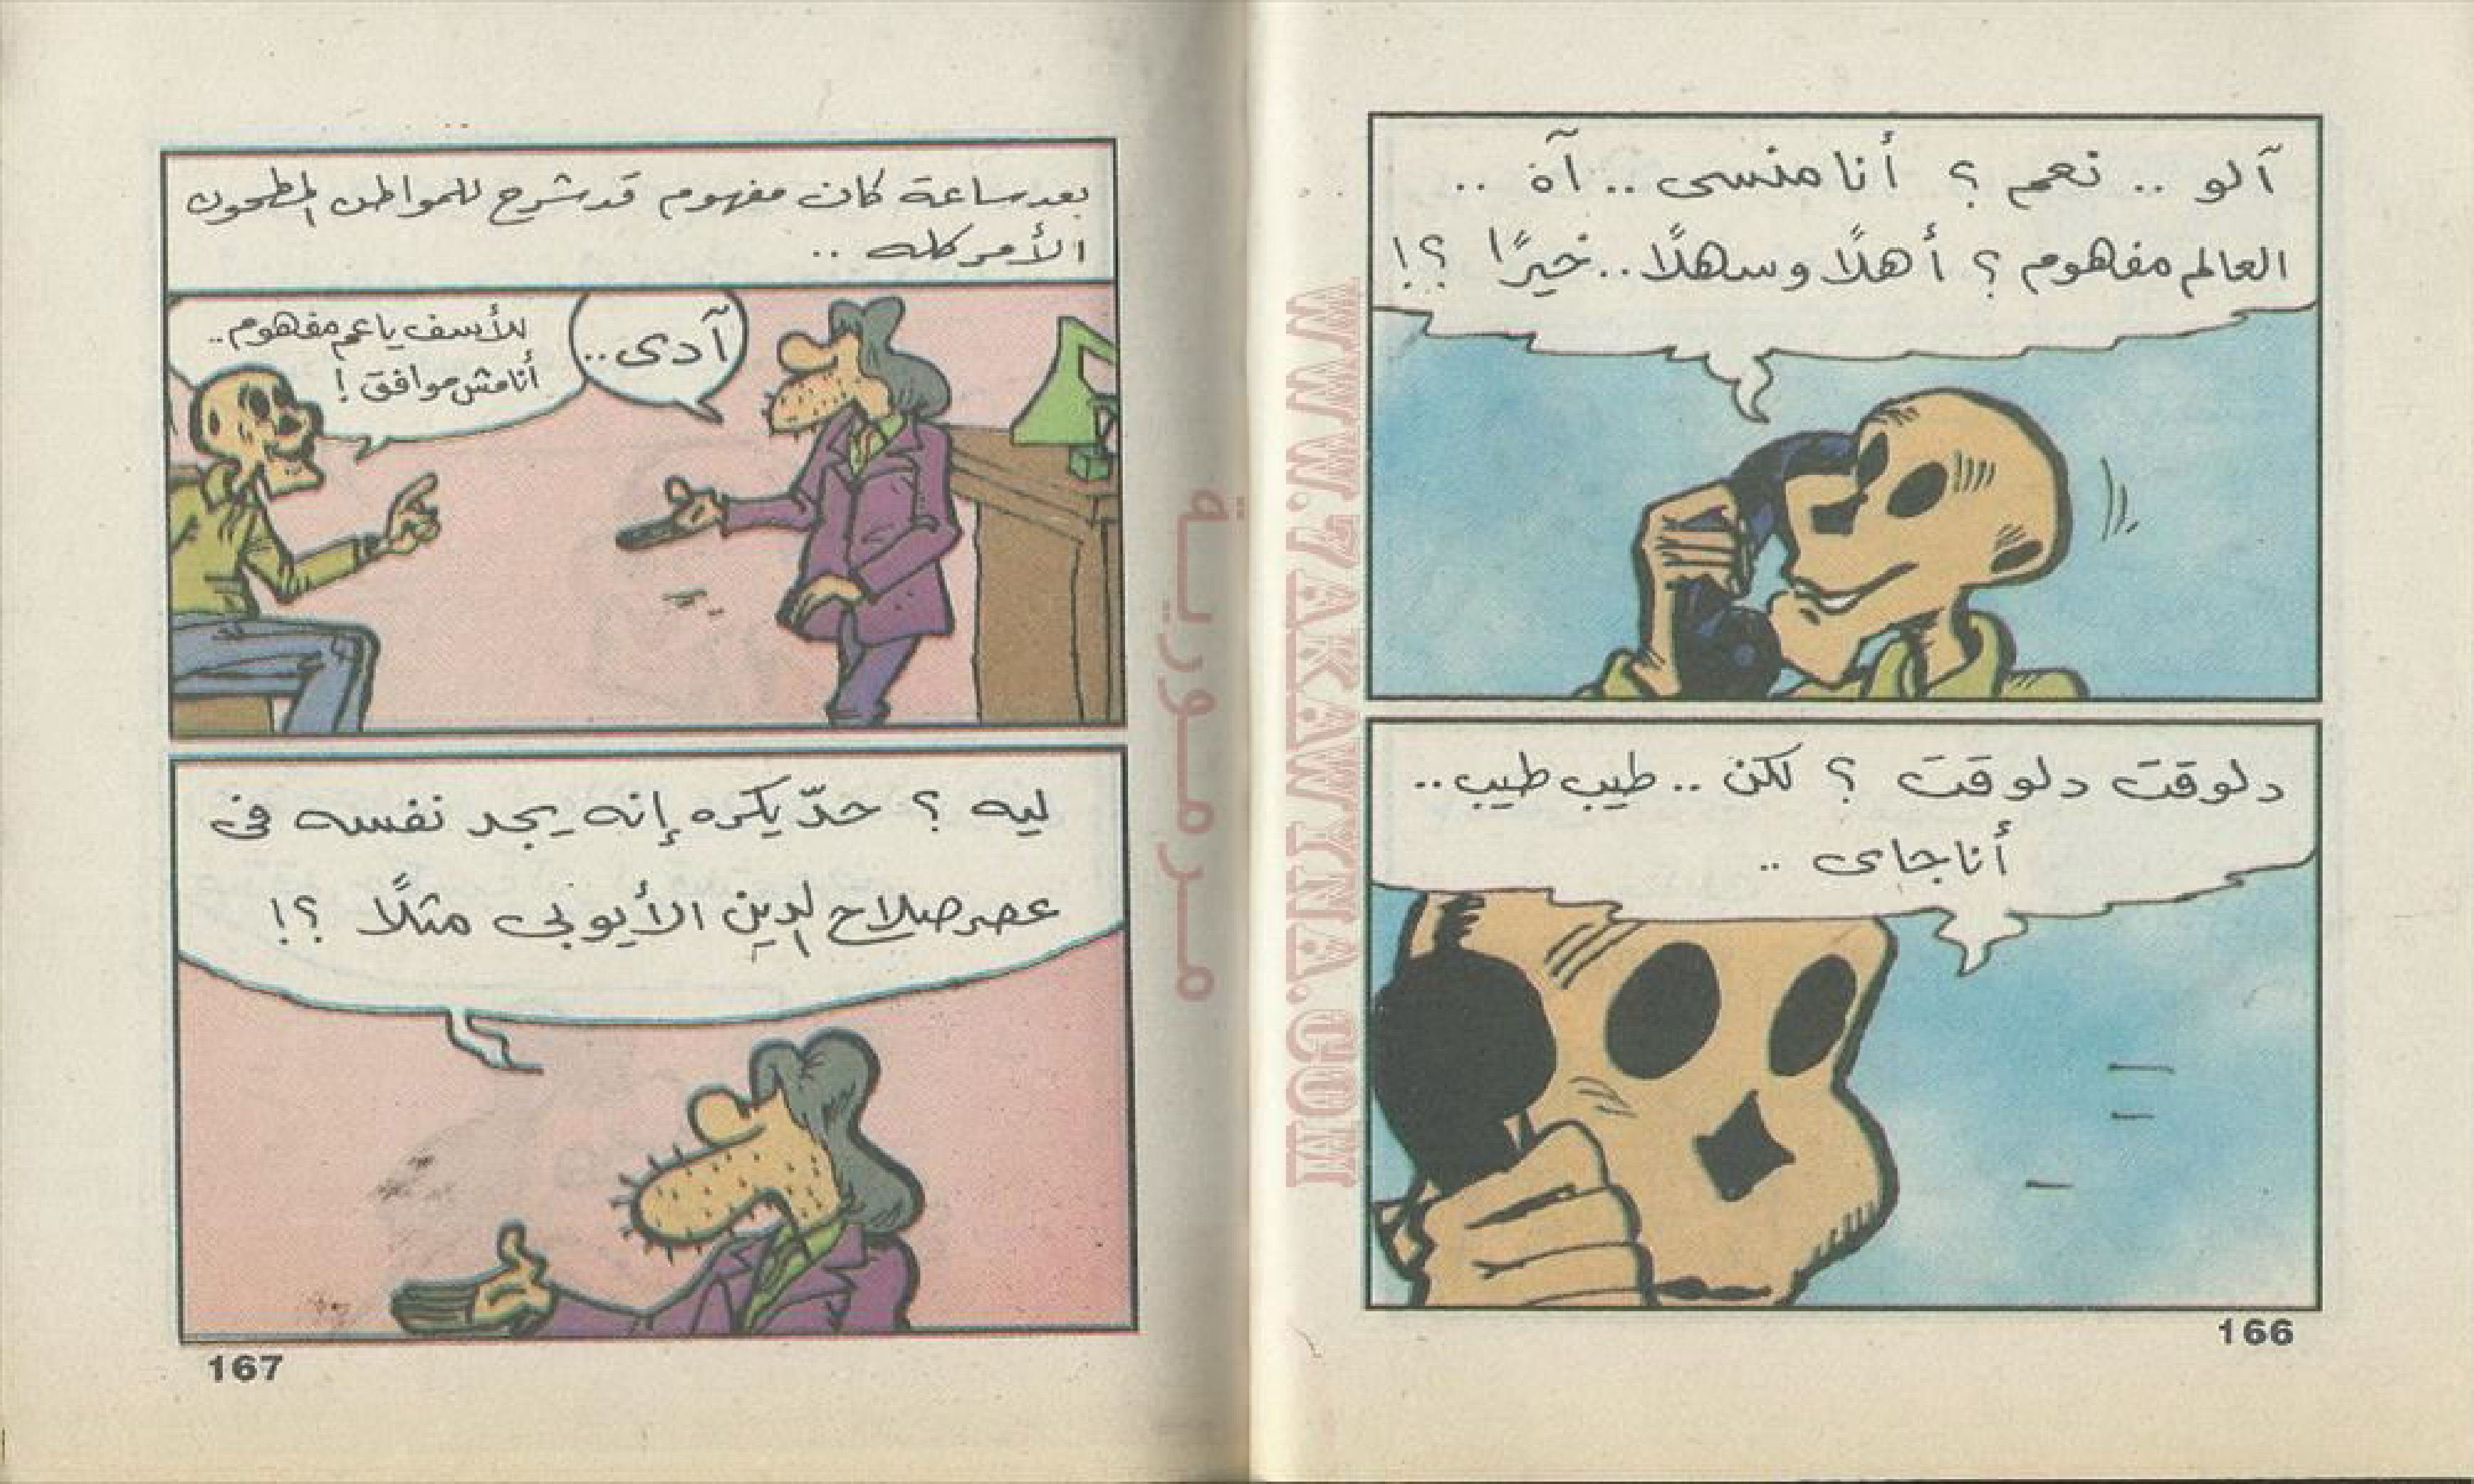 آلو .. نعم ؟ أنا منسى .. آه ..
العالم مفهوم ؟ أهلًا وسهلًا .. خيرًا ؟!
دلوقت دلوقت ؟ لكن .. طيب طيب ..
أنا جاى ..
166
بعد ساعة كان مفهوم قد شرح للمواطن المطحون
الأمر كله ..
آدى ..
للأسف يا عم مفهوم ..
أنا مش موافق !
ليه ؟ حدّ يكره إنه يجد نفسه فى
عصر صلاح الدين الأيوبى مثلًا ؟!
167
مرمورية
WWW.7AKAWYNA.COM